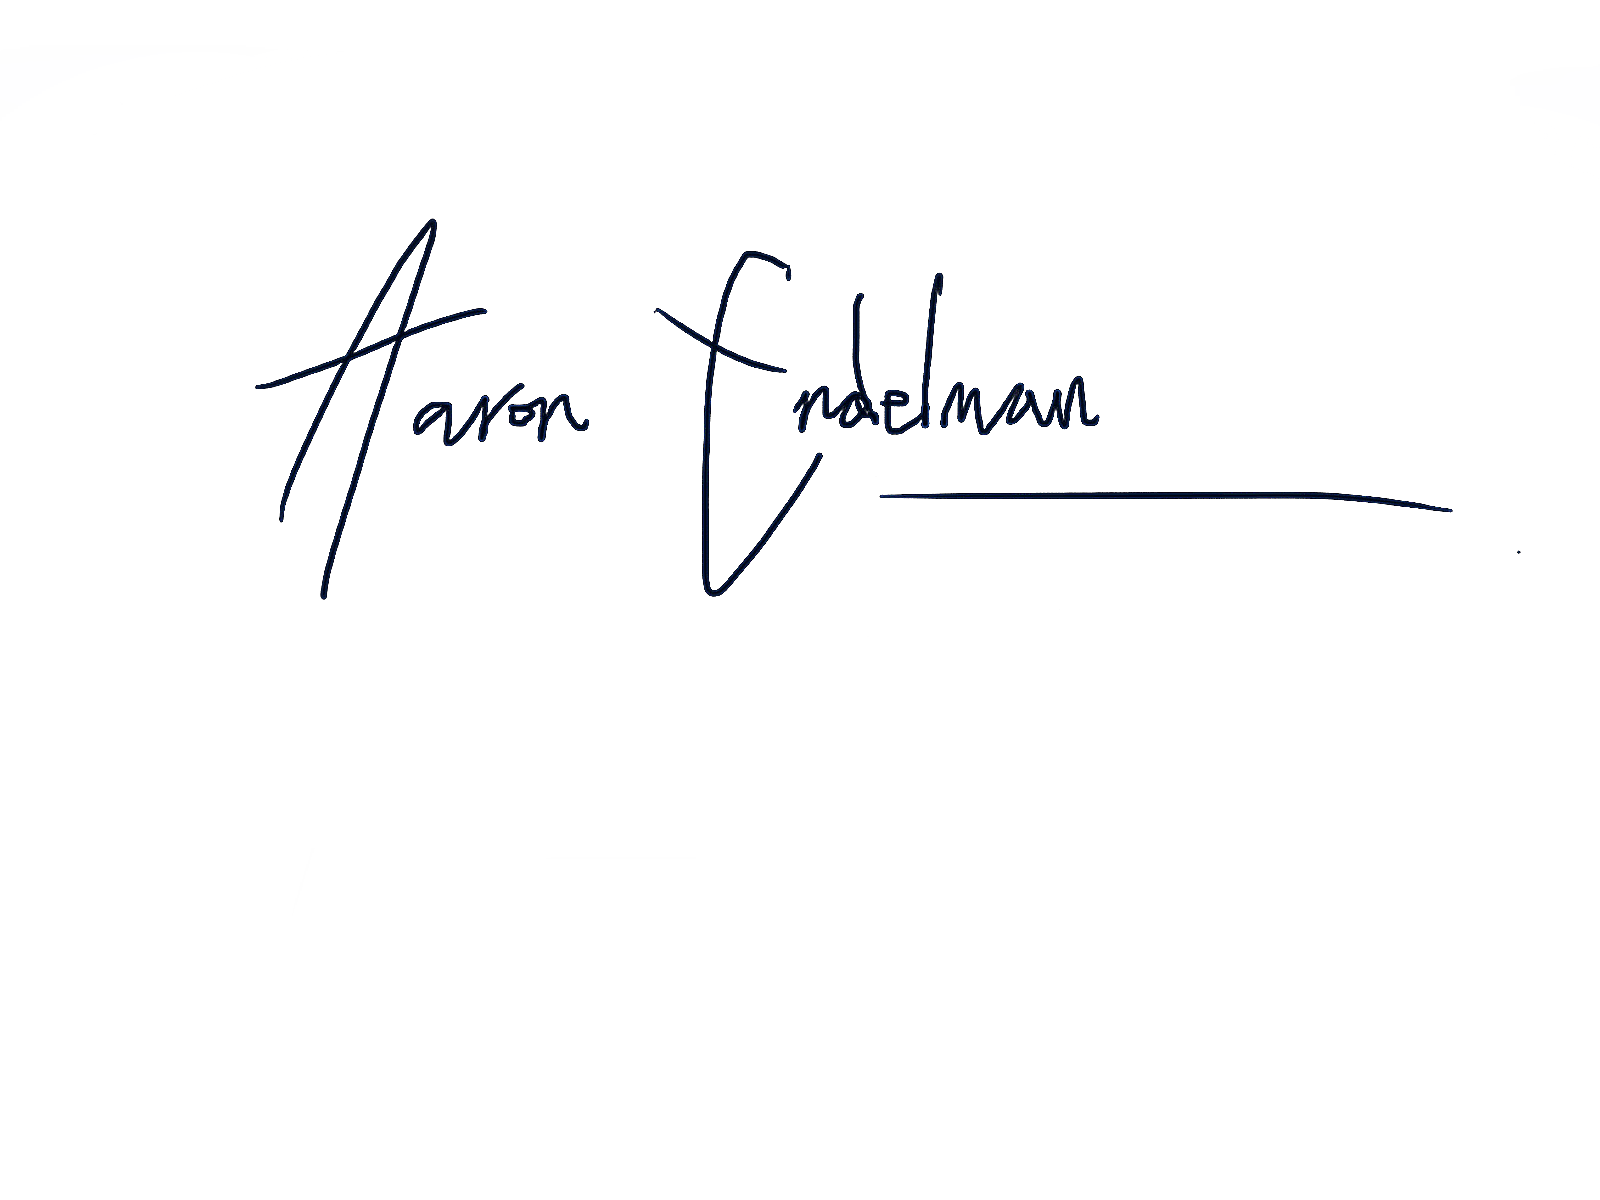 Aaron Endelman